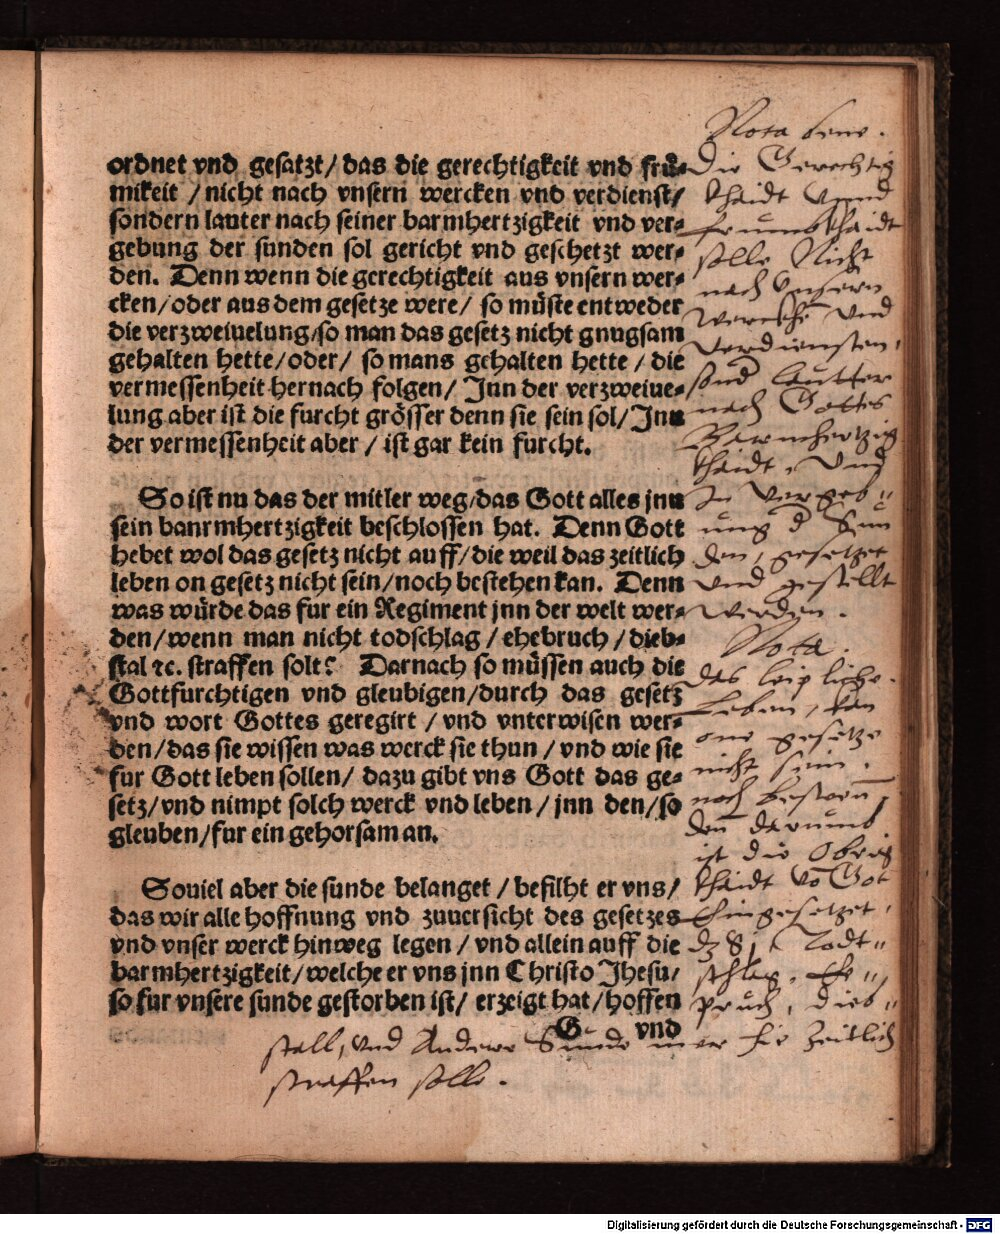 ordnet vnd gesatzt / das die gerechtigkeit vnd frü⸗
mikeit / nicht nach vnsern wercken vnd verdienst /
sondern lauter nach seiner barmhertzigkeit vnd ver⸗
gebung der sunden sol gericht vnd geschetzt wer⸗
den. Denn wenn die gerechtigkeit aus vnsern wer⸗
cken / oder aus dem gesetze were / so müste entweder
die verzweiuelung / so man das gesetz nicht gnugsam
gehalten hette / oder / so mans gehalten hette / die
vermessenheit hernach folgen / Jnn der verzweiue⸗
lung aber ist die furcht grösser denn sie sein sol / Jnn
der vermessenheit aber / ist gar kein furcht.
So ist nu das der mitler weg / das Gott alles jnn
sein banrmhertzigkeit beschlossen hat. Denn Gott
hebet wol das gesetz nicht auff / die weil das zeitlich
leben on gesetz nicht sein / noch bestehen kan. Denn
was würde das fur ein Regiment jnn der welt wer⸗
den / wenn man nicht todschlag / ehebruch / dieb⸗
stal ꝛc. straffen solt? Darnach so müssen auch die
Gottfurchtigen vnd gleubigen / durch das gesetz
vnd wort Gottes geregirt / vnd vnterwisen wer⸗
den / das sie wissen was werck sie thun / vnd wie sie
fur Gott leben sollen / dazu gibt vns Gott das ge⸗
setz / vnd nimpt solch werck vnd leben / jnn den / so
gleuben / fur ein gehorsam an.
Souiel aber die sunde belanget / befilht er vns /
das wir alle hoffnung vnd zuuersicht des gesetzes
vnd vnser werck hinweg legen / vnd allein auff die
barmhertzigkeit / welche er vns jnn Christo Jhesu /
so fur vnsere sunde gestorben ist / erzeigt hat / hoffen
G vnd
Nota bene.
Die Gerechtig
khaidt vnnd
frumbkhaidt
solle Nicht
nach Vnsern
Werckhe vnd
verdiensten,
Sond lautter
nach Gottes
Barmhertzig
khaidt, Vnd
In vergeb⸗
ung d Sun
den, gesetzet
vnd gestellt
werden.
Nota.
das leipliche
Leben, kan
one gesetze
nicht sein.
noch besteen,
den darumb
ist die Obrig
khaidt vo Got
Eingesetzet,
Todt⸗
schlag, Ehe⸗
pruch, Dieb⸗
stall, vnd Andere Sunde zeitlich
straffen solle.
Digitalisierung gefördert durch die Deutsche Forschungsgemeinschaft - DFG